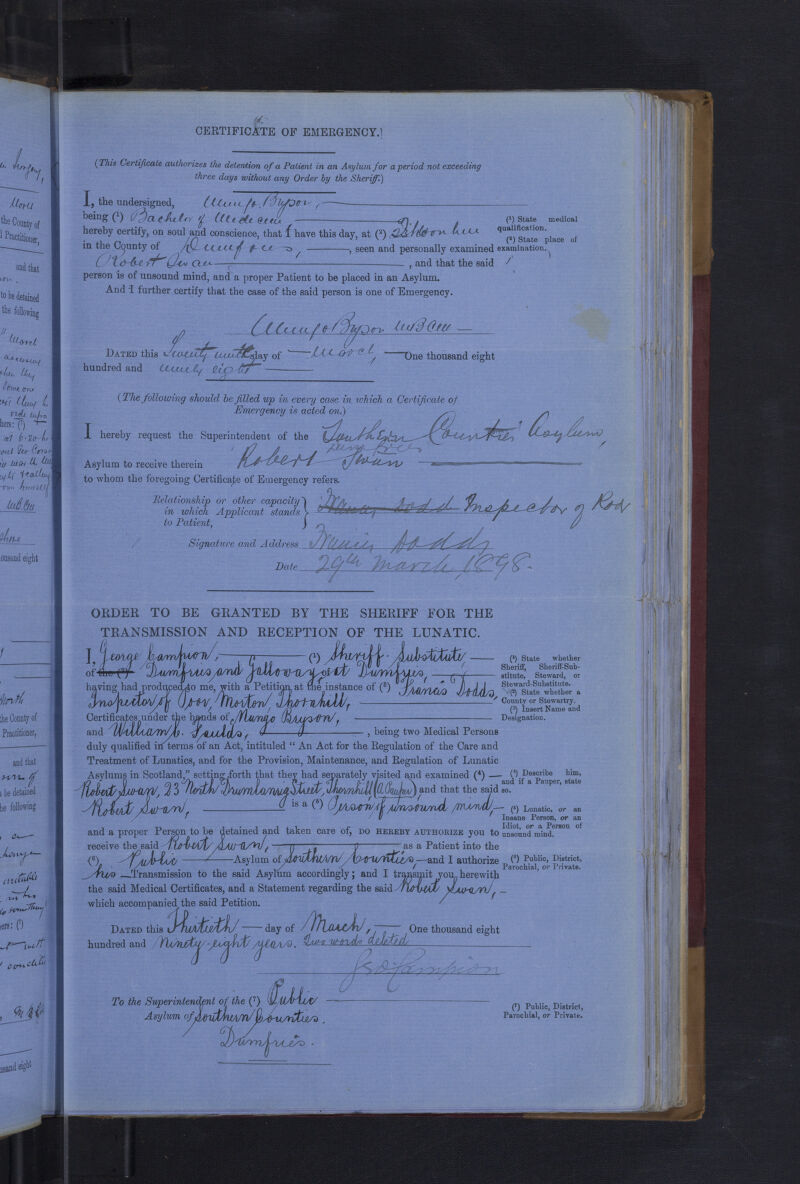 CERTIFICATE OF EMERGENCY.
(This Certificate authorizes the detention of a Patient in an Asylum for a period not exceeding
three days without any Order by the Sheriff.)
I, the undersigned, Mungo Bryson,
being (¹) Bachelor of Medicine
hereby certify, on soul and conscience, that I have this day, at (²)
in the County of Dumfries, seen and personally examined
Robert Swan, and that the said
person is of unsound mind, and a proper Patient to be placed in an Asylum.
And I further certify that the case of the said person is one of Emergency.
(¹) State medical
qualification.
(²) State place of
examination.
Mungo Bryson MB CM
DATED this Twenty ninth day of March, One thousand eight
hundred and ninety eight
(The following should be filled up in every case in which a Certificate of
Emergency is acted on.)
I hereby request the Superintendent of the Southern Counties Asylum,
Dumfries
Asylum to receive therein Robert Swan
to whom the foregoing Certificate of Emergency refers.
Relationship or other capacity
in which Applicant stands
to Patient,
Inspector of Poor
Signature and Address Francis Dodds
Date 29th March 1898.
ORDER TO BE GRANTED BY THE SHERIFF FOR THE
TRANSMISSION AND RECEPTION OF THE LUNATIC.
I, George Campion, (¹) Sheriff-Substitute
of the (²) Dumfries and Galloway at Dumfries,
having had produced to me, with a Petition at the instance of (³) Francis Dodds,
Inspector of Poor, Morton, Thornhill,
Certificates under the hands of Mungo Bryson,
and William B. Faulds, being two Medical Persons
duly qualified in terms of an Act, intituled “ An Act for the Regulation of the Care and
Treatment of Lunatics, and for the Provision, Maintenance, and Regulation of Lunatic
Asylums in Scotland,” setting forth that they had separately visited and examined (⁴)
Robert Swan, 23 North Drumlanrig Street, Thornhill (a Pauper) and that the said
Robert Swan, is a (⁵) Person of unsound mind,
and a proper Person to be detained and taken care of, DO HEREBY AUTHORIZE you to
receive the said Robert Swan, as a Patient into the
(⁶) Public Asylum of Southern Counties, and I authorize
his Transmission to the said Asylum accordingly; and I transmit you herewith
the said Medical Certificates, and a Statement regarding the said Robert Swan,
which accompanied the said Petition.
(¹) State whether
Sheriff, Sheriff-Sub-
stitute, Steward, or
Steward-Substitute.
(²) State whether a
County or Stewartry.
(³) Insert Name and
Designation.
(⁴) Describe him,
and if a Pauper, state
so.
(⁵) Lunatic, or an
Insane Person, or an
Idiot, or a Person of
unsound mind.
(⁶) Public, District,
Parochial, or Private.
DATED this Thirtieth day of March, One thousand eight
hundred and Ninety-eight years. Two words deleted
Geo Campion
To the Superintendent of the (⁷) Public
Asylum of Southern Counties.
Dumfries.
(⁷) Public, District,
Parochial, or Private.